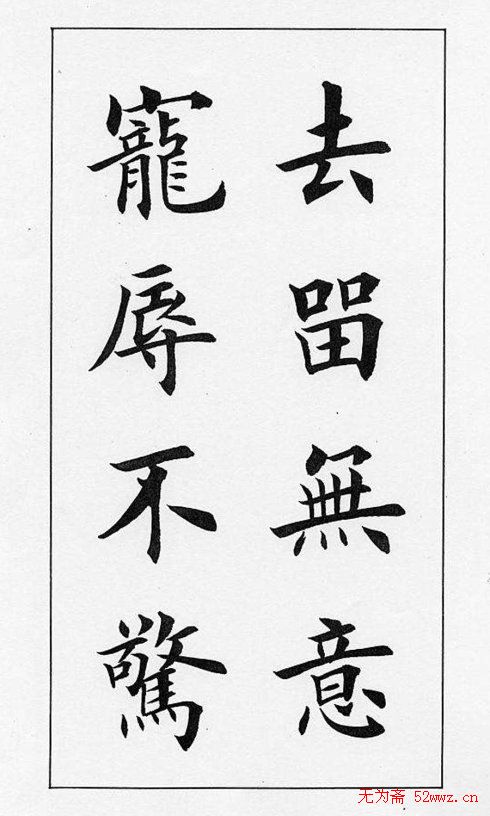 去留無意
寵辱不驚
无为斋 52wwz.cn